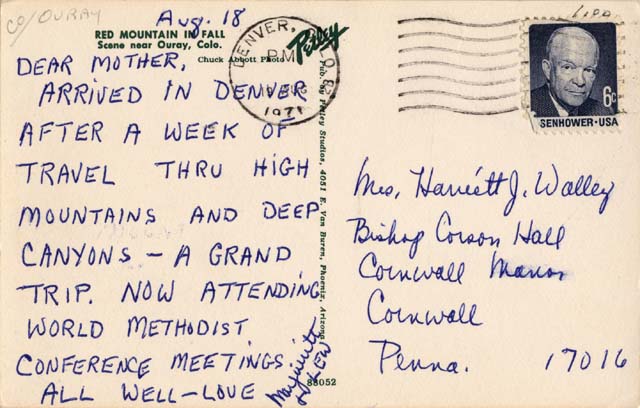 CO/OURAY
Aug. 18
RED MOUNTAIN IN FALL
Scene near Ouray, Colo.
Chuck Abbott Photo
Petley
DEAR MOTHER,
ARRIVED IN DENVER
AFTER A WEEK OF
TRAVEL THRU HIGH
MOUNTAINS AND DEEP
CANYONS – A GRAND
TRIP. NOW ATTENDING
WORLD METHODIST
CONFERENCE MEETINGS.
ALL WELL – LOVE
Marjorie
& LEW
Pub. by Petley Studios, 4051 E. Van Buren, Phoenix, Arizona
88052
DENVER, COLO
PM
1971
6¢
SENHOWER·USA
Mrs. Harriett J. Walley
Bishop Corson Hall
Cornwall Manor
Cornwall
Penna. 17016